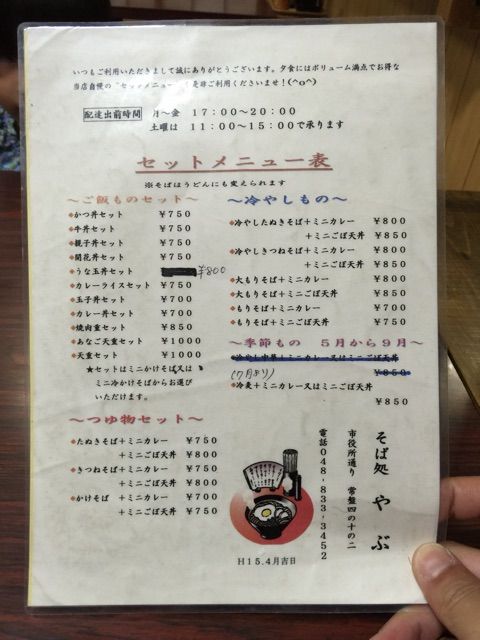 いつもご利用いただきまして誠にありがとうございます。夕食にはボリューム満点でお得な
当店自慢の"セットメニュー"を是非ご利用くださいませ！(^o^)
配達出前時間 月～金 17：00～20：00
土曜は 11：00～15：00で承ります
セットメニュー表
※そばはうどんにも変えられます
～ご飯ものセット～
◆かつ丼セット ￥750
◆牛丼セット ￥750
◆親子丼セット ￥750
◆開花丼セット ￥750
◆うな玉丼セット ￥800
◆カレーライスセット ￥750
◆玉子丼セット ￥700
◆カレー丼セット ￥700
◆焼肉重セット ￥850
◆あなご天重セット ￥1000
◆天重セット ￥1000
★セットはミニかけそば又は
ミニ冷かけそばからお選び
いただけます。
～つゆ物セット～
◆たぬきそば＋ミニカレー ￥750
＋ミニごぼ天丼 ￥800
◆きつねそば＋ミニカレー ￥750
＋ミニごぼ天丼 ￥800
◆かけそば ＋ミニカレー ￥700
＋ミニごぼ天丼 ￥750
～冷やしもの～
◆冷やしたぬきそば＋ミニカレー ￥800
＋ミニごぼ天丼 ￥850
◆冷やしきつねそば＋ミニカレー ￥800
＋ミニごぼ天丼 ￥850
◆大もりそば＋ミニカレー ￥800
◆大もりそば＋ミニごぼ天丼 ￥850
◆もりそば＋ミニカレー ￥700
◆もりそば＋ミニごぼ天丼 ￥750
～季節もの 5月から9月～
◆冷やし中華＋ミニカレー又はミニごぼ天丼
(7月より) ￥850
◆冷麦＋ミニカレー又はミニごぼ天丼
￥850
そば処 やぶ
市役所通り 常盤四の十の二
電話048-833-3452
H15.4月吉日